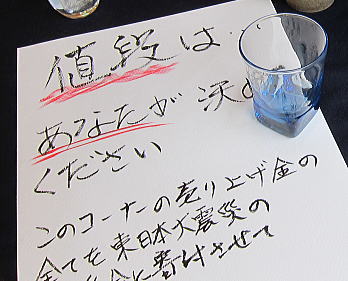 値段は・・
あなたが 決め
ください
このコーナーの売り上げ金の
全てを東日本大震災の
金に寄付させて